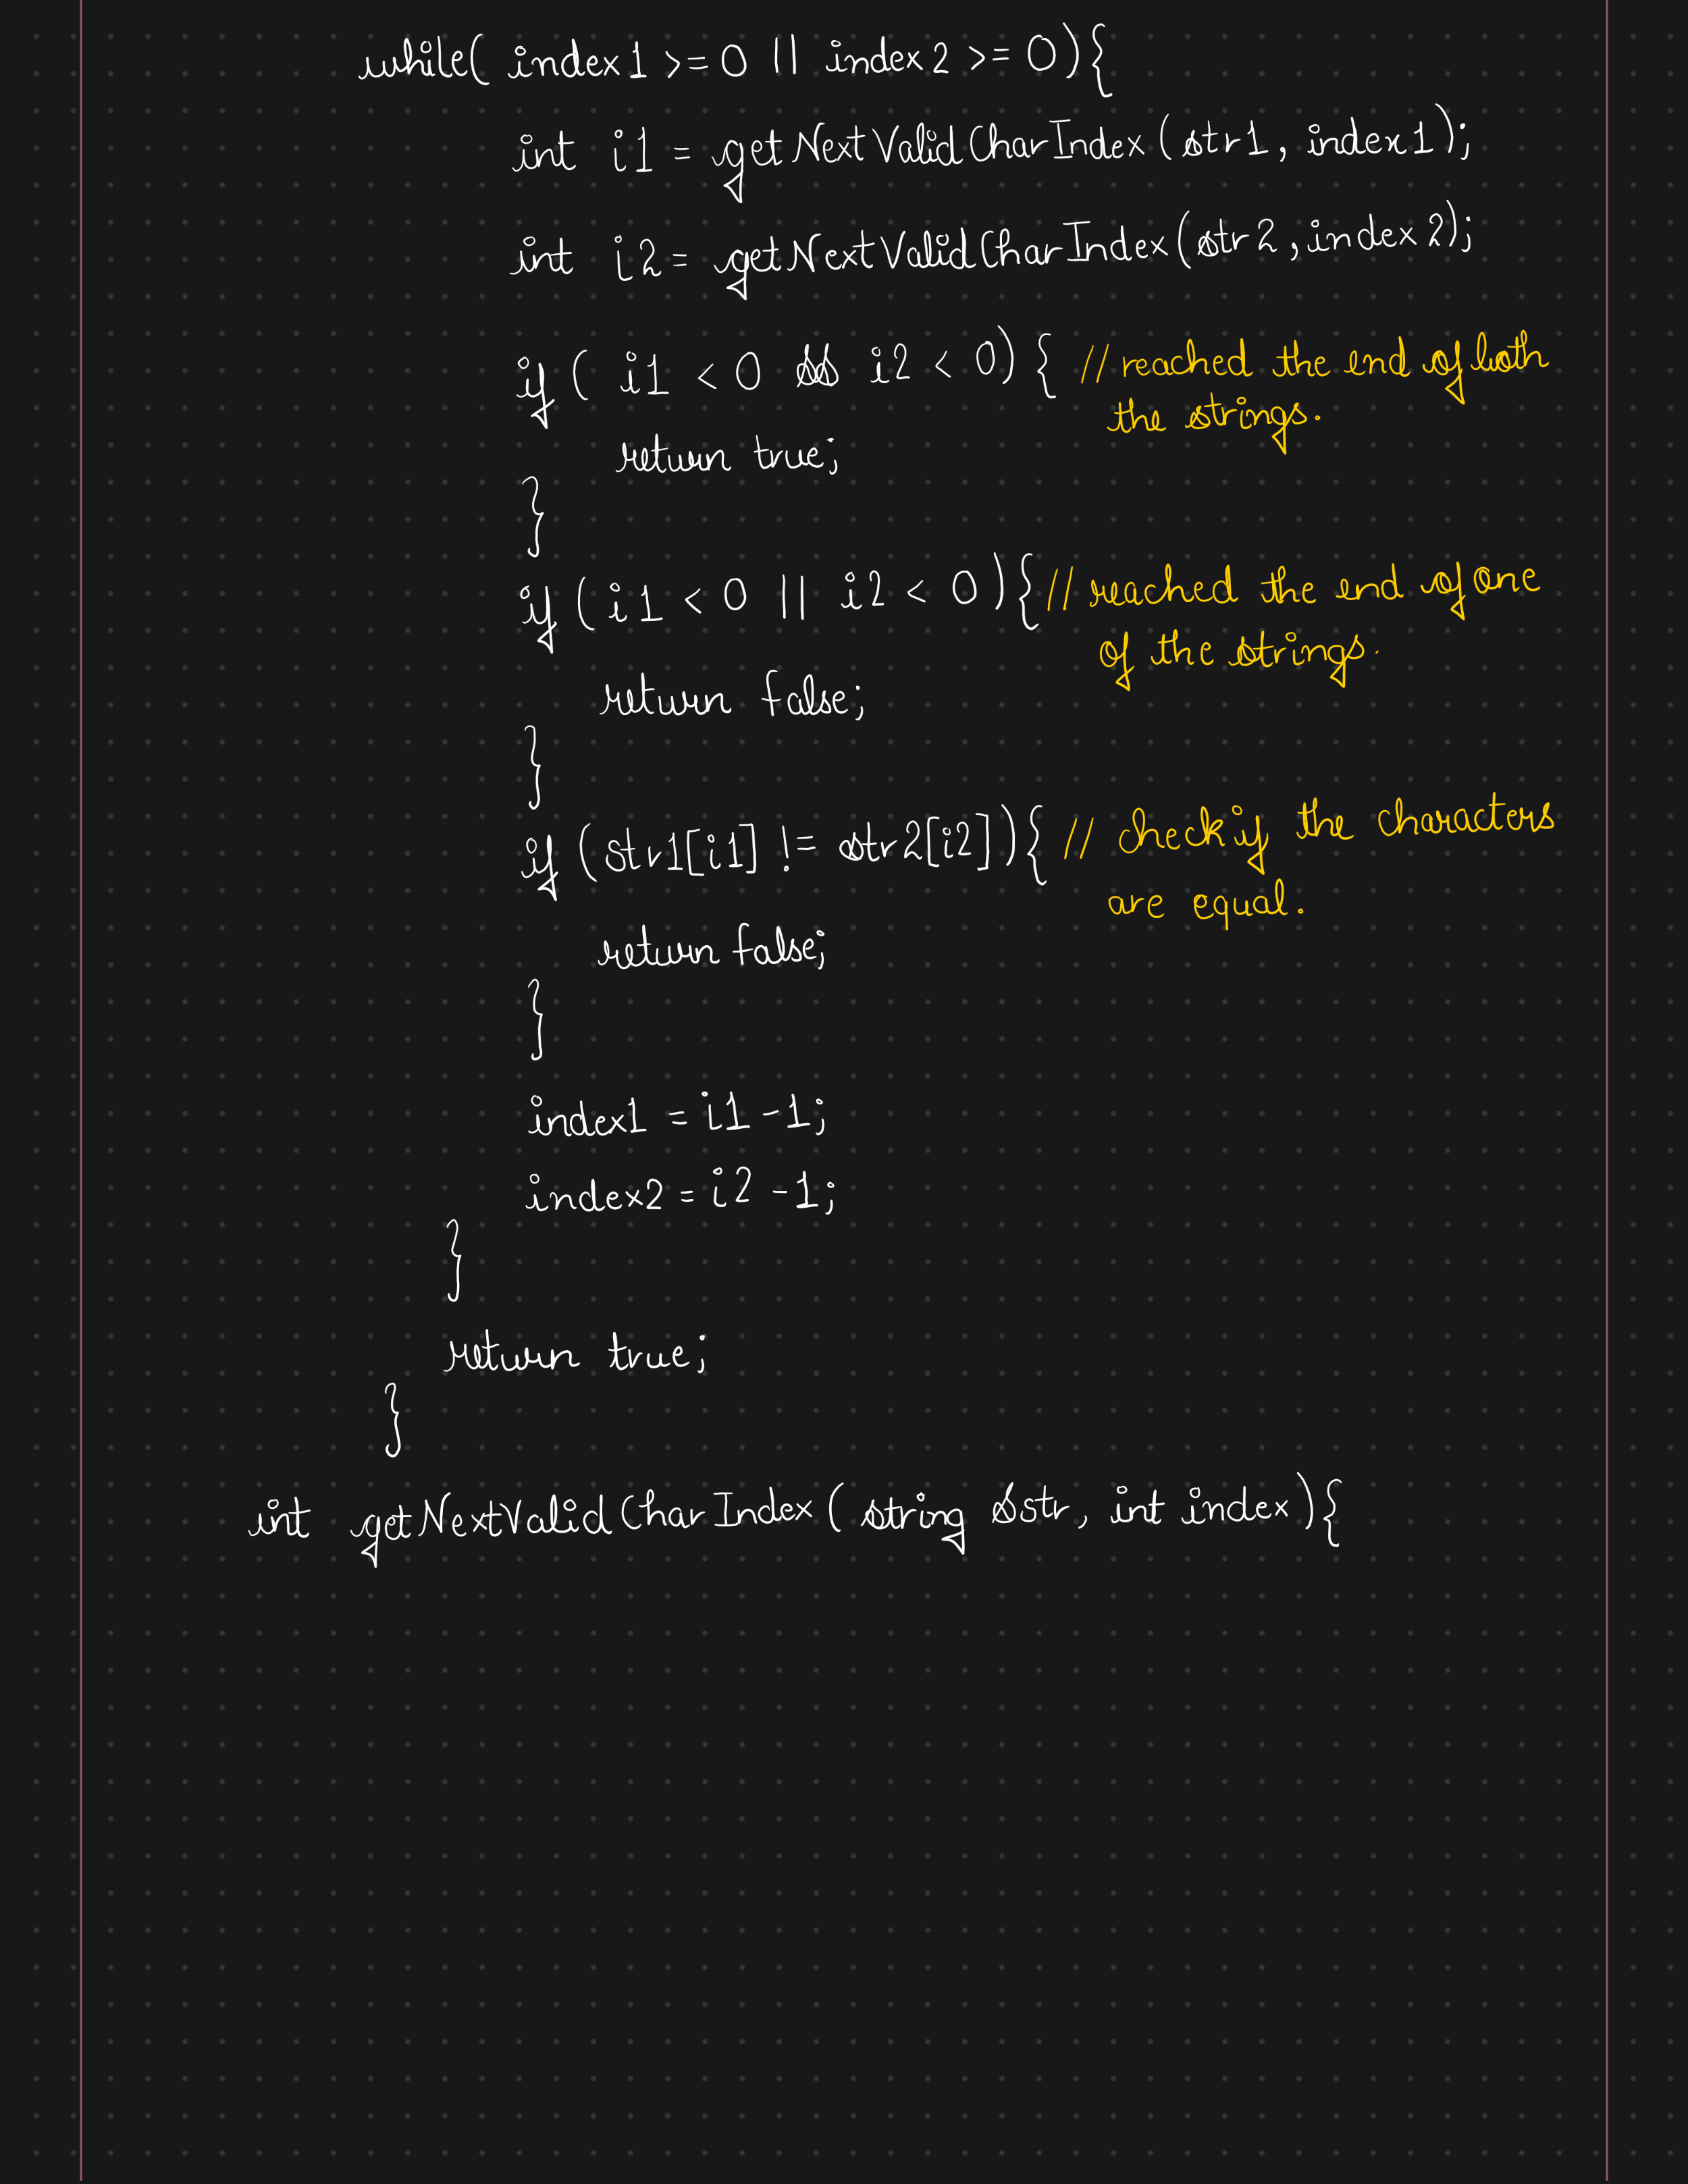 while( index1 >= 0 || index2 >= 0){
int i1 = getNextValidCharIndex(str1, index1);
int i2 = getNextValidCharIndex(str2, index2);
if( i1 < 0 && i2 < 0){ // reached the end of both
the strings.
return true;
}
if(i1 < 0 || i2 < 0){ // reached the end of one
of the strings.
return false;
}
if(str1[i1] != str2[i2]){ // check if the characters
are equal.
return false;
}
index1 = i1 -1;
index2 = i2 -1;
}
return true;
}
int getNextValidCharIndex( string &str, int index){